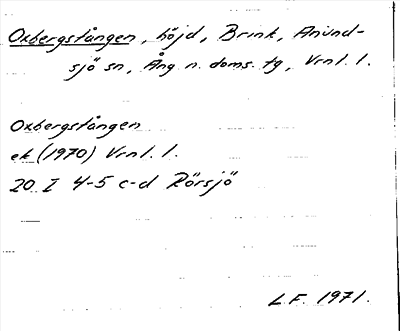 Oxbergstången, höjd, Brink, Anund-
sjö sn, Ång n. doms. tg, Vrnl. l.
Oxbergstången
ek (1970) Vrnl. l.
20 I 4-5 c-d Rörsjö
L.F. 1971.